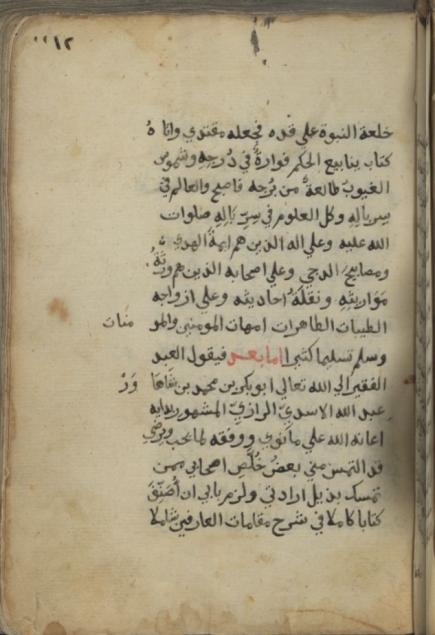 ١٢
خلعة النبوة علي قده فجعله مقتدي واتاه
كتاب ينابيع الحكم فوارةٌ في دُرجِهِ وشموس
الغيوب طالعةٌ من بُرجه فاصبح والعالم في
سرباله وكل العلوم في سِرّ باله صلوات
الله عليه وعلي اله الذين هم ايمة الهدي
ومصابيح الدجي وعلي اصحابه الذين هم ورثةُ
مَوَاريثِهِ ونقلةُ احاديثه وعلي ازواجه
الطيبات الطاهرات امهات المومنين والمو منات
وسلم تسليما كثيرا اما بعد فيقول العبد
الفقير الي الله تعالي ابو بكر بن محمد بن شاها وَرْ
عبد الله الاسدي الرازي المشهور بدايه
اعانه الله علي ما نوي ووفقه لما يحب ويرضي
قد التمس مني بعضُ خُلَّصِ اصحابي ممن
تمسك بذيل ارادتي ولزم بابي ان أُصَنِّفَ
كتابا كاملا في شرح مقامات العارفين شاملا